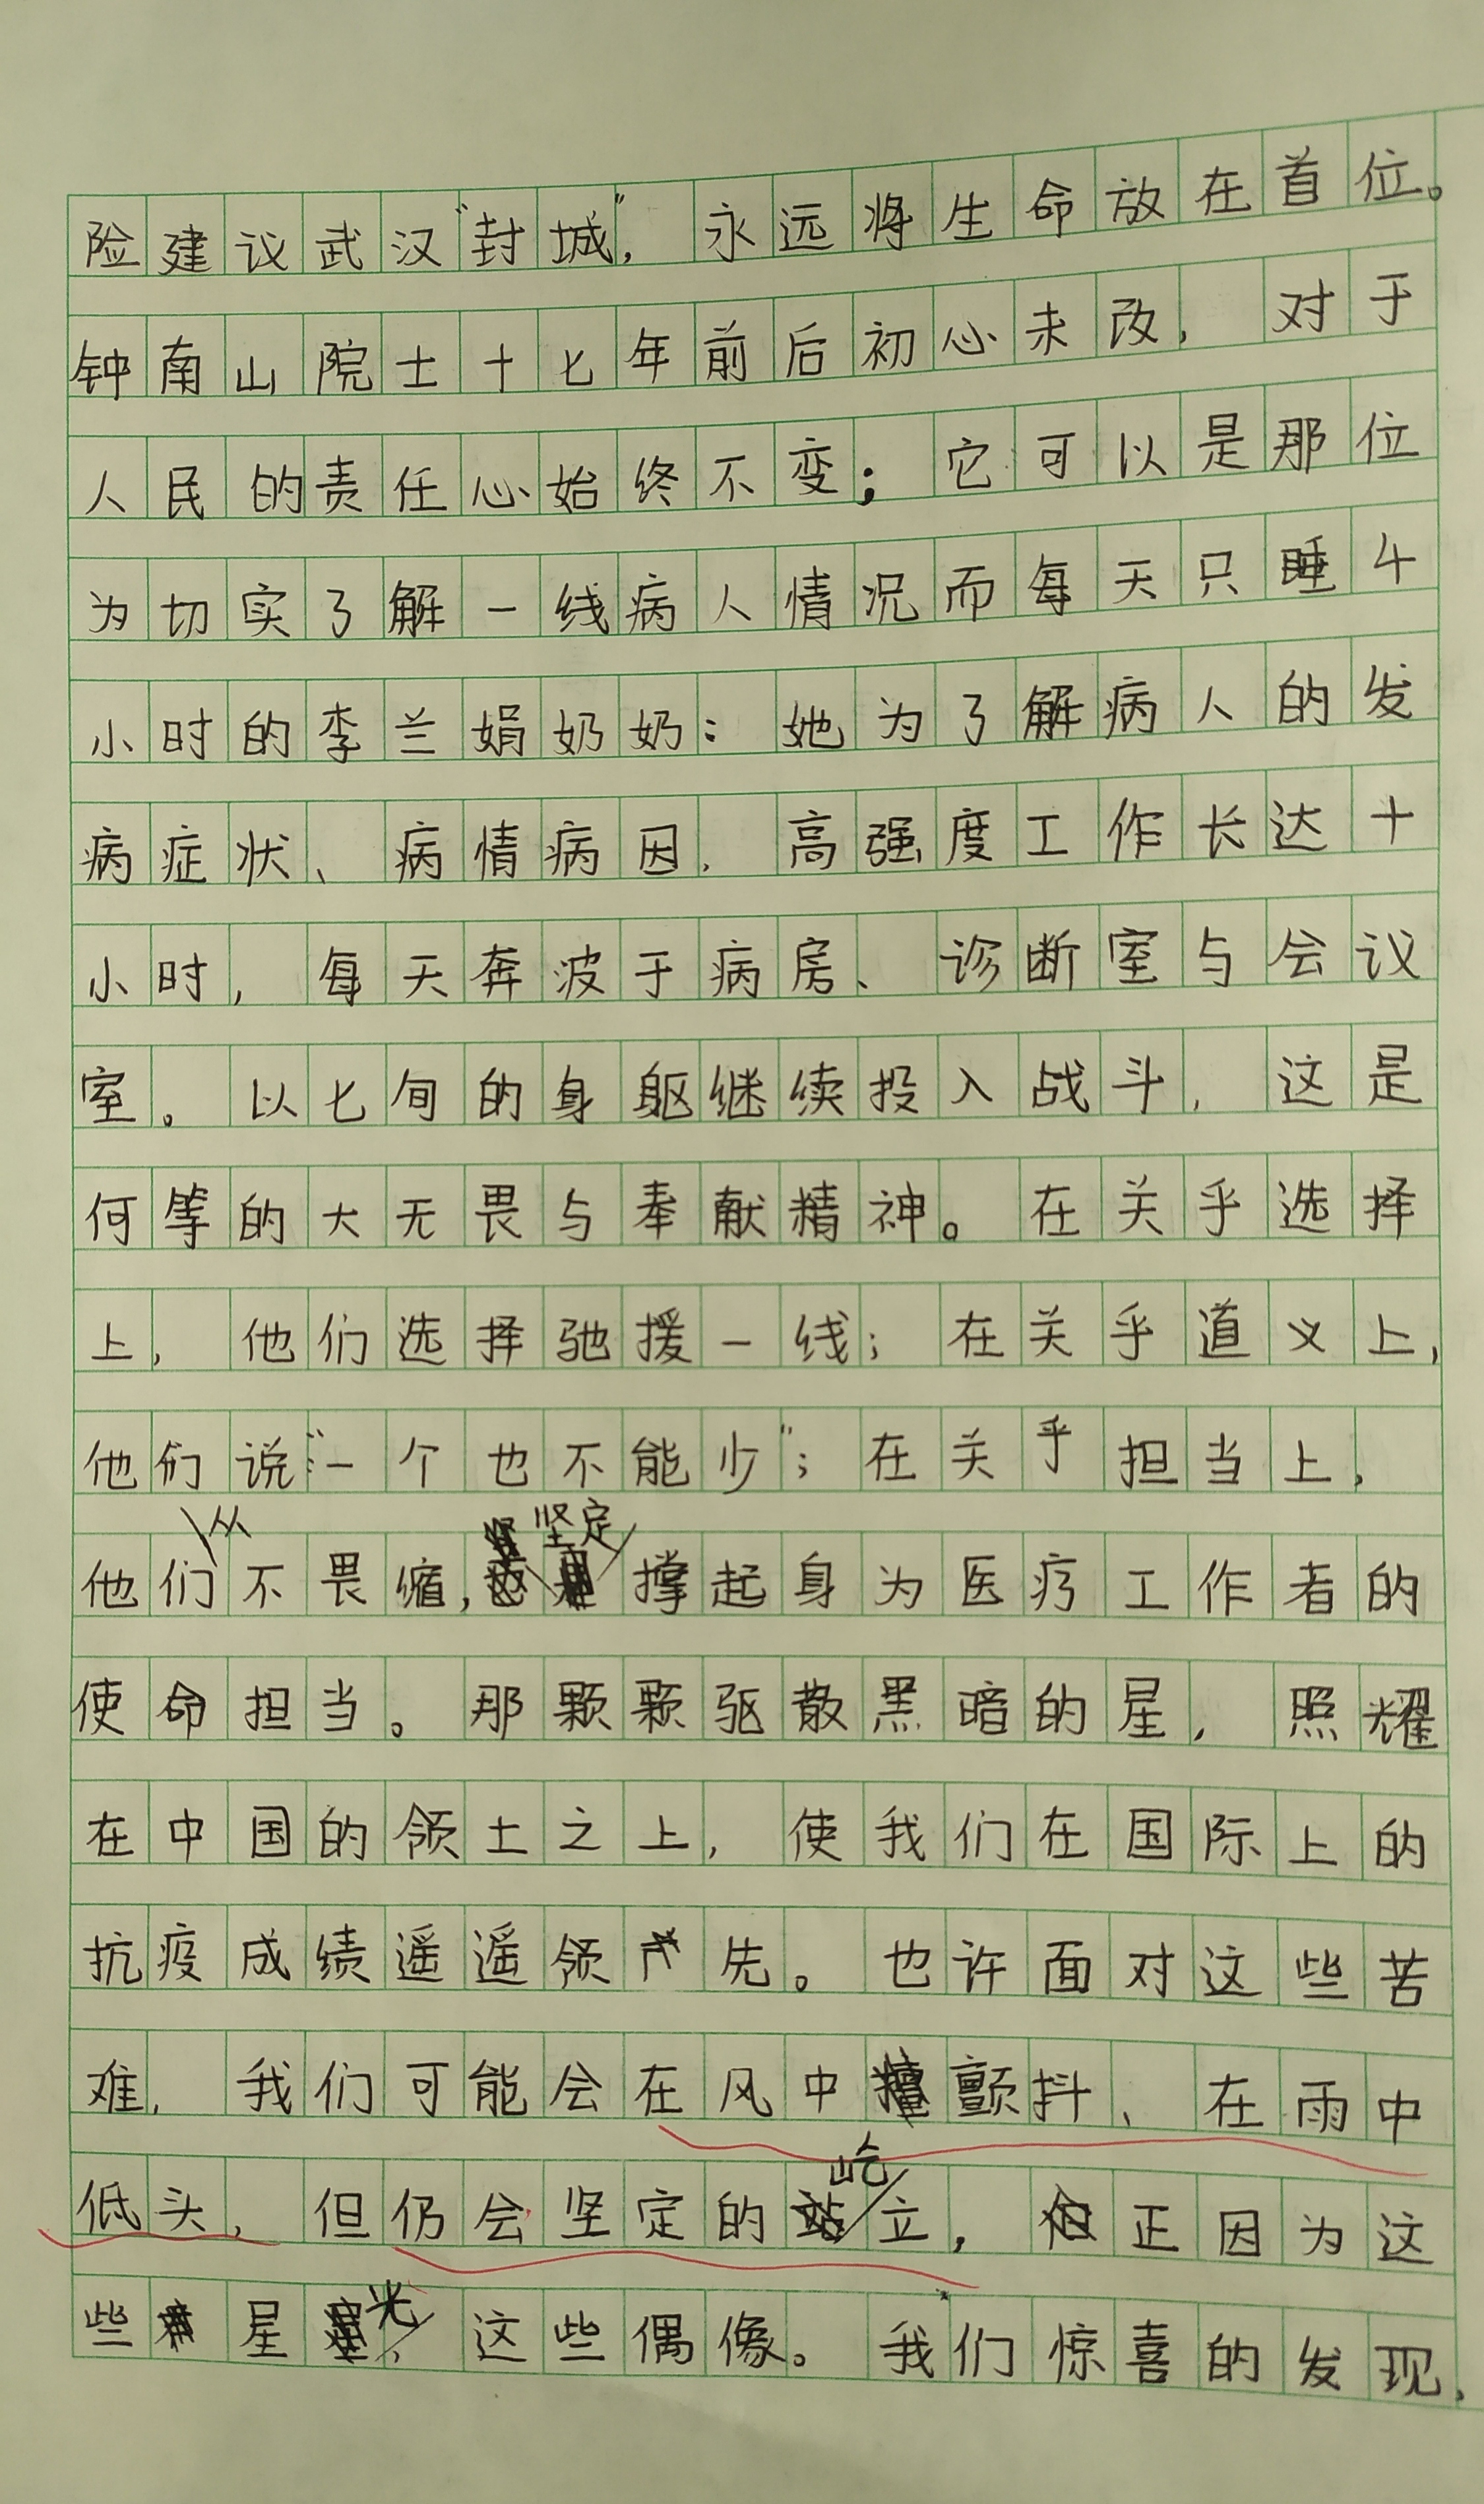 险建议武汉“封城”，永远将生命放在首位。
钟南山院士十七年前后初心未改，对于
人民的责任心始终不变；它可以是那位
为切实了解一线病人情况而每天只睡4
小时的李兰娟奶奶：她为了解病人的发
病症状、病情病因，高强度工作长达十
小时，每天奔波于病房、诊断室与会议
室。以七旬的身躯继续投入战斗，这是
何等的大无畏与奉献精神。在关乎选择
上，他们选择驰援一线；在关乎道义上，
他们说：“一个也不能少”；在关乎担当上，
他们从不畏缩，坚定撑起身为医疗工作者的
使命担当。那颗颗驱散黑暗的星，照耀
在中国的领土之上，使我们在国际上的
抗疫成绩遥遥领先。也许面对这些苦
难，我们可能会在风中颤抖、在雨中
低头，但仍会坚定的屹立，正因为这
些星光，这些偶像。我们惊喜的发现，